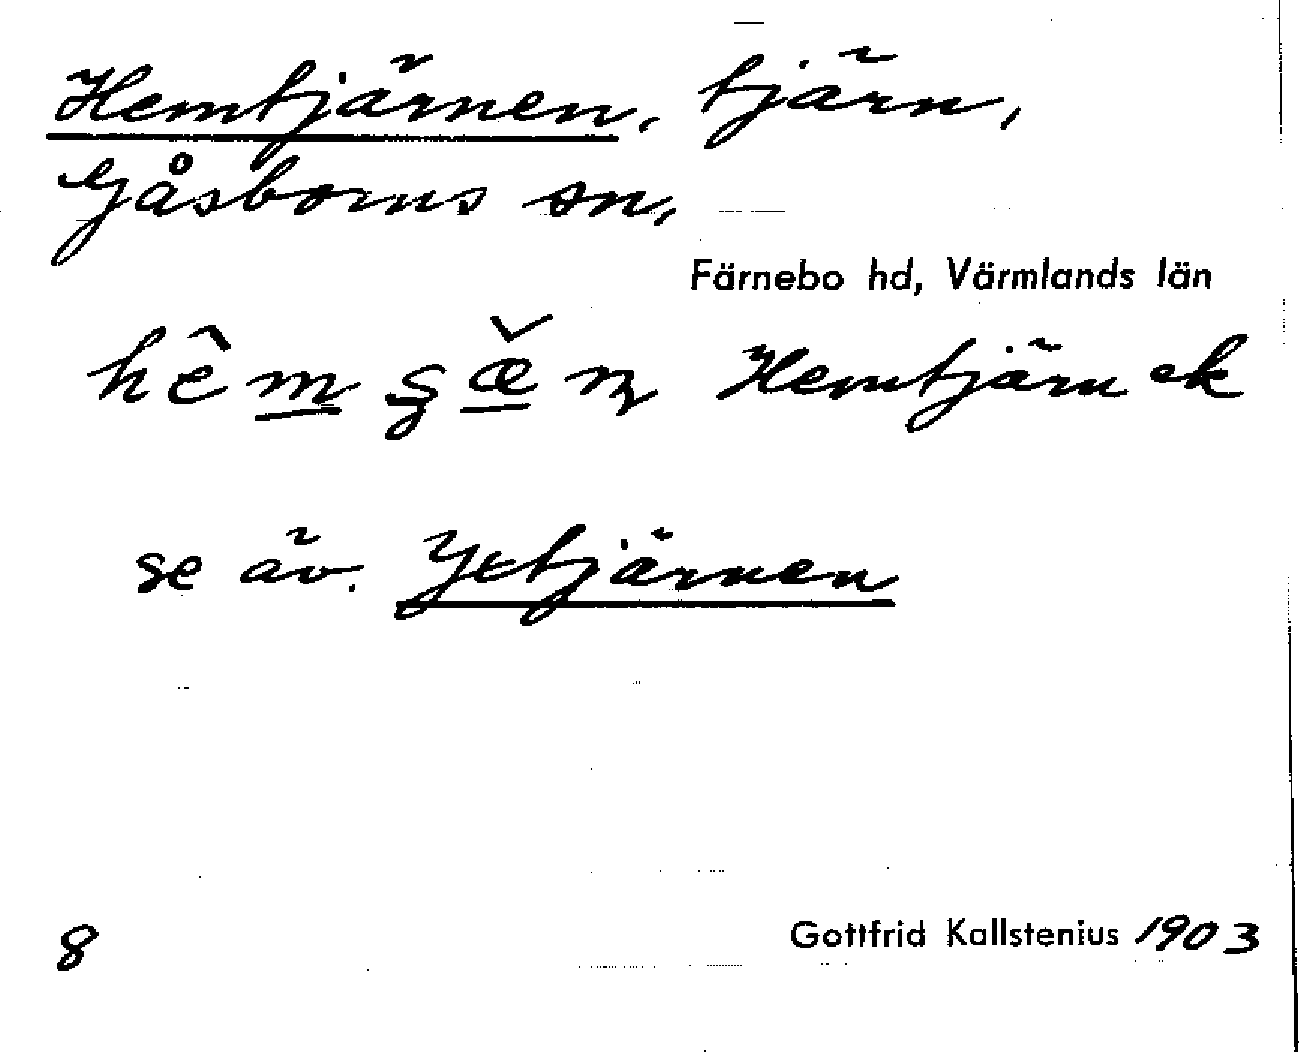 Hemtjärnen, tjärn,
Gåsborns sn,
Färnebo hd, Värmlands län
hêm Hemtjärn ek
se äv. Yxtjärnen
8
Gottfrid Kallstenius 1903